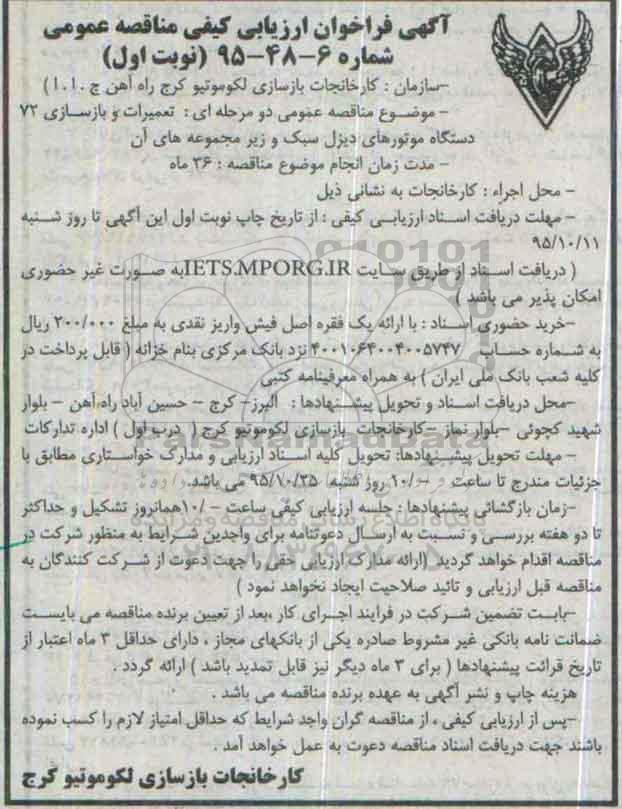 آگهی فراخوان ارزیابی کیفی مناقصه عمومی
شماره ۶-۴۸-۹۵ (نوبت اول)
-سازمان : کارخانجات بازسازی لکوموتیو کرج راه آهن ج .ا.ا )
- موضوع مناقصه عمومی دو مرحله ای : تعمیرات و بازسازی ۷۲
دستگاه موتورهای دیزل سبک و زیر مجموعه های آن
- مدت زمان انجام موضوع مناقصه : ۳۶ ماه
- محل اجراء : کارخانجات به نشانی ذیل
- مهلت دریافت اسناد ارزیابی کیفی : از تاریخ چاپ نوبت اول این آگهی تا روز شنبه
۹۵/۱۰/۱۱
( دریافت اسناد از طریق سایت IETS.MPORG.IR به صورت غیر حضوری
امکان پذیر می باشد )
-خرید حضوری اسناد : با ارائه یک فقره اصل فیش واریز نقدی به مبلغ ۲۰۰/۰۰۰ ریال
به شماره حساب ۴۰۰۱۰۶۴۰۰۴۰۰۵۷۴۷ نزد بانک مرکزی بنام خزانه ( قابل پرداخت در
کلیه شعب بانک ملی ایران ) به همراه معرفینامه کتبی
-محل دریافت اسناد و تحویل پیشنهادها : البرز- کرج - حسین آباد راه آهن - بلوار
شهید کچوئی -بلوار نماز -کارخانجات بازسازی لکوموتیو کرج ( درب اول ) اداره تدارکات
- مهلت تحویل پیشنهادها: تحویل کلیه اسناد ارزیابی و مدارک خواستاری مطابق با
جزئیات مندرج تا ساعت ۱۰/۰۰ روز شنبه ۹۵/۱۰/۲۵ می باشد.
-زمان بازگشائی پیشنهادها : جلسه ارزیابی کیفی ساعت -/۱۰همانروز تشکیل و حداکثر
تا دو هفته بررسی و نسبت به ارسال دعوتنامه برای واجدین شرایط به منظور شرکت در
مناقصه اقدام خواهد گردید (ارائه مدارک ارزیابی حقی را جهت دعوت از شرکت کنندگان به
مناقصه قبل ارزیابی و تائید صلاحیت ایجاد نخواهد نمود )
-بابت تضمین شرکت در فرایند اجرای کار ،بعد از تعیین برنده مناقصه می بایست
ضمانت نامه بانکی غیر مشروط صادره یکی از بانکهای مجاز ، دارای حداقل ۳ ماه اعتبار از
تاریخ قرائت پیشنهادها ( برای ۳ ماه دیگر نیز قابل تمدید باشد ) ارائه گردد .
هزینه چاپ و نشر آگهی به عهده برنده مناقصه می باشد .
-پس از ارزیابی کیفی ، از مناقصه گران واجد شرایط که حداقل امتیاز لازم را کسب نموده
باشند جهت دریافت اسناد مناقصه دعوت به عمل خواهد آمد .
کارخانجات بازسازی لکوموتیو کرج